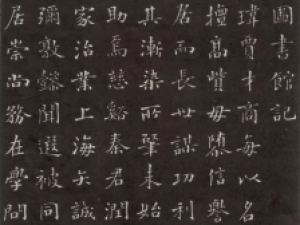 圖書館記
瑋賈才商每以名
擅高貲毋隳信譽
居而長世謀功利
其漸染所肇未始
助焉慈谿秦君潤
家治業上海矢誠
彌敦懿聞遐被同
居崇尚務在學問